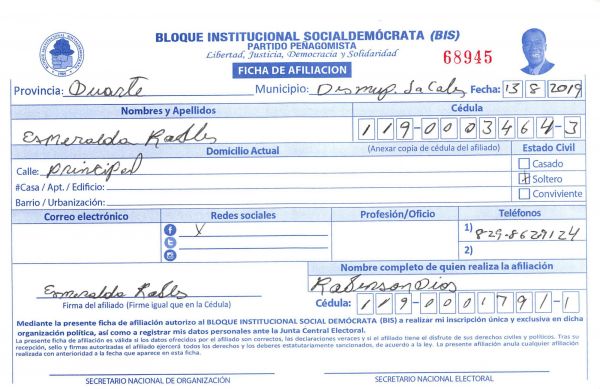 BLOQUE INSTITUCIONAL SOCIALDEMÓCRATA (BIS)
PARTIDO PEÑAGOMISTA
Libertad, Justicia, Democracia y Solidaridad
68945
FICHA DE AFILIACION
Provincia: Duarte Municipio: Fecha: 13 8 2019
Nombres y Apellidos Cédula
Esmeralda Robles 119-0003464-3
Domicilio Actual (Anexar copia de cédula del afiliado) Estado Civil
Calle: principal Casado
#Casa / Apt. / Edificio: X Soltero
Barrio / Urbanización: Conviviente
Correo electrónico Redes sociales Profesión/Oficio Teléfonos
X 1) 829-8627124
2)
Nombre completo de quien realiza la afiliación
Esmeralda Robles Robinson
Firma del afiliado (Firma igual que en la Cédula) Cédula: 119-0001791-1
Mediante la presente ficha de afiliación autorizo al BLOQUE INSTITUCIONAL SOCIAL DEMÓCRATA (BIS) a realizar mi inscripción única y exclusiva en dicha
organización política, así como a registrar mis datos personales ante la Junta Central Electoral.
La presente ficha de afiliación es válida si los datos ofrecidos por el afiliado son correctos, las declaraciones veraces y si el afiliado tiene el disfrute de sus derechos civiles y políticos. Tras su
recepción, sello y firmas autorizadas el afiliado ejercerá todos los derechos y los deberes estatutariamente sancionados, de acuerdo a la ley. La presente afiliación anula cualquier afiliación
realizada con anterioridad a la fecha que aparece en esta ficha.
SECRETARIO NACIONAL DE ORGANIZACIÓN SECRETARIO NACIONAL ELECTORAL